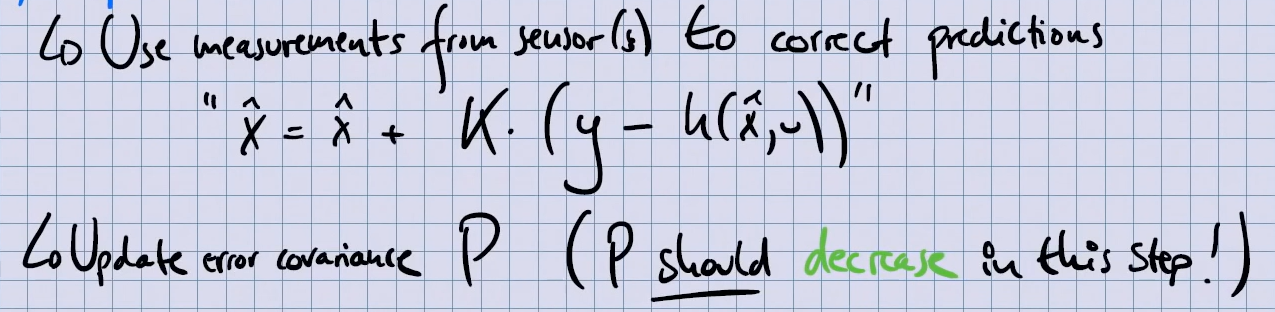 ↳ Use measurements from sensor(s) to correct predictions
" x̂ = x̂ + K · (y - h(x̂,u)) "
↳ Update error covariance P (P should decrease in this step!)